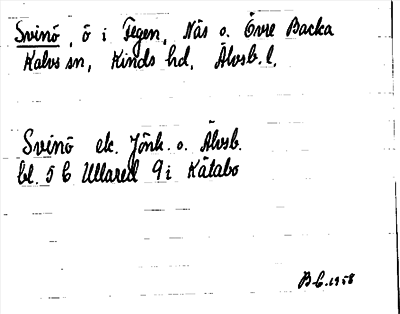 Svinö, ö i Fegen, Näs o. Övre Backa
Kalvs sn, Kinds hd, Älvsb. l.
Svinö ek. Jönk. o. Älvsb.
bl. 5 C Ullared 9 i Kätabo
B.C. 1958